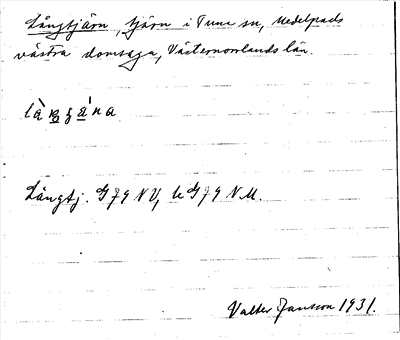 Långtjärn, tjärn i Tuna sn, Medelpads
västra domsaga, Västernorrlands län.
Långtj. G 79 NV, le G 79 N.M.
Valter Jansson 1931.